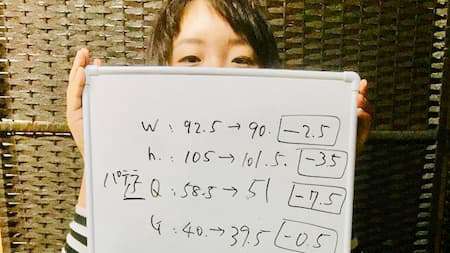 W : 92.5 → 90. -2.5
h. : 105 → 101.5. -3.5
Q : 58.5 → 51 -7.5
G : 40. → 39.5 -0.5